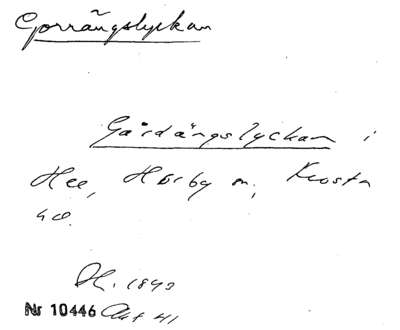 Gorrängslyckan
Gärdängslyckan i
Hee, Hörby sn, Frosta
hd.
LH. 1843
Nr 10446 Akt 41